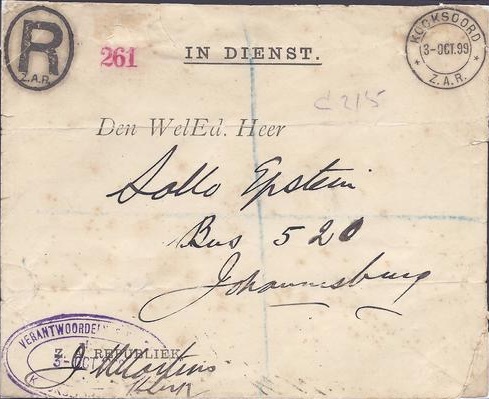 R
Z.A.R.
261
IN DIENST.
KOCKSOORD
3-OCT.99
* Z.A.R. *
C 215
Den WelEd. Heer
Sollo Epstein
Bus 520
Johannesburg
VERANTWOORDEL
Z. A. REPUBLIEK
3-OCT
J. Martins